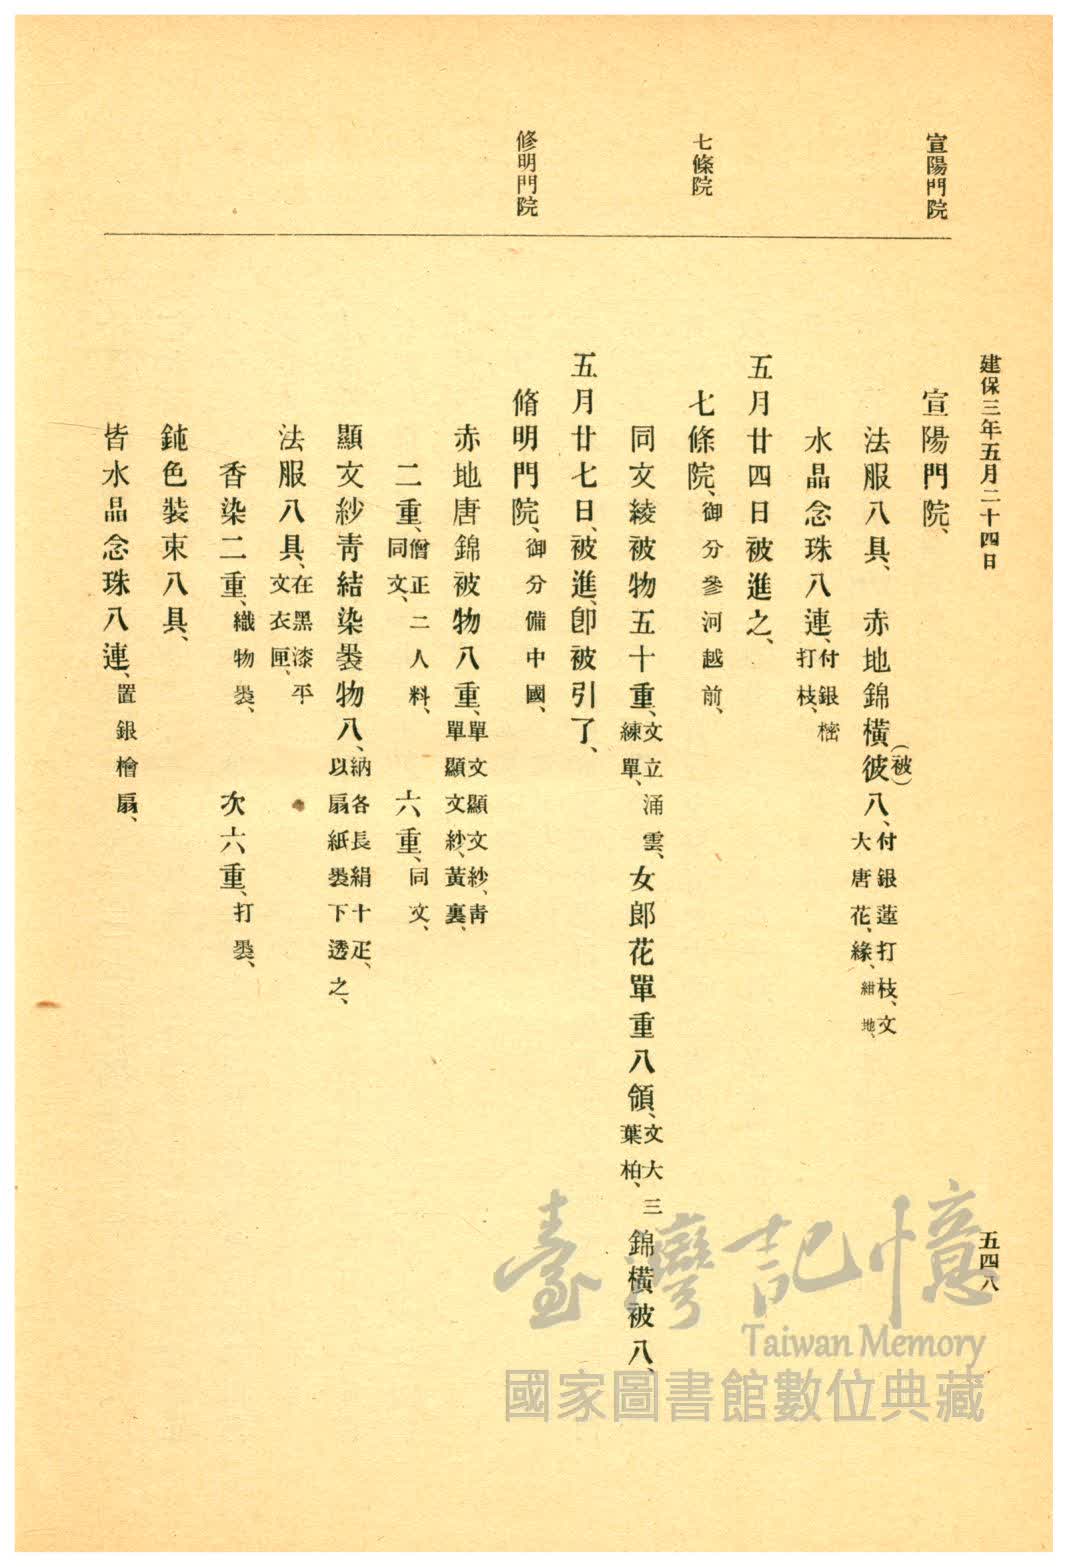 建保三年五月二十四日
五四八
宣陽門院
七條院
修明門院
宣陽門院、
法服八具、　赤地錦橫彼（被）八、付銀蓮打枝、文大唐花、緣、紺地、
水晶念珠八連、付銀樒打枝、
五月廿四日被進之、
七條院、御分參河越前、
同文綾被物五十重、文立涌雲、練單、女郞花單重八領、文大三葉柏、錦橫被八、
五月廿七日、被進、卽被引了、
脩明門院、御分備中國、
赤地唐錦被物八重、單文顯文紗、靑單顯文紗、黃裏、
二重、僧正二人料、同文、　六重、同文、
顯文紗靑結染裝物八、納各長絹十疋、以扇紙裝下透之、
法服八具、在黑漆平文衣匣、
香染二重、織物裝、　次六重、打裝、
鈍色裝束八具、
皆水晶念珠八連、置銀檜扇、
臺灣記憶
Taiwan Memory
國家圖書館數位典藏